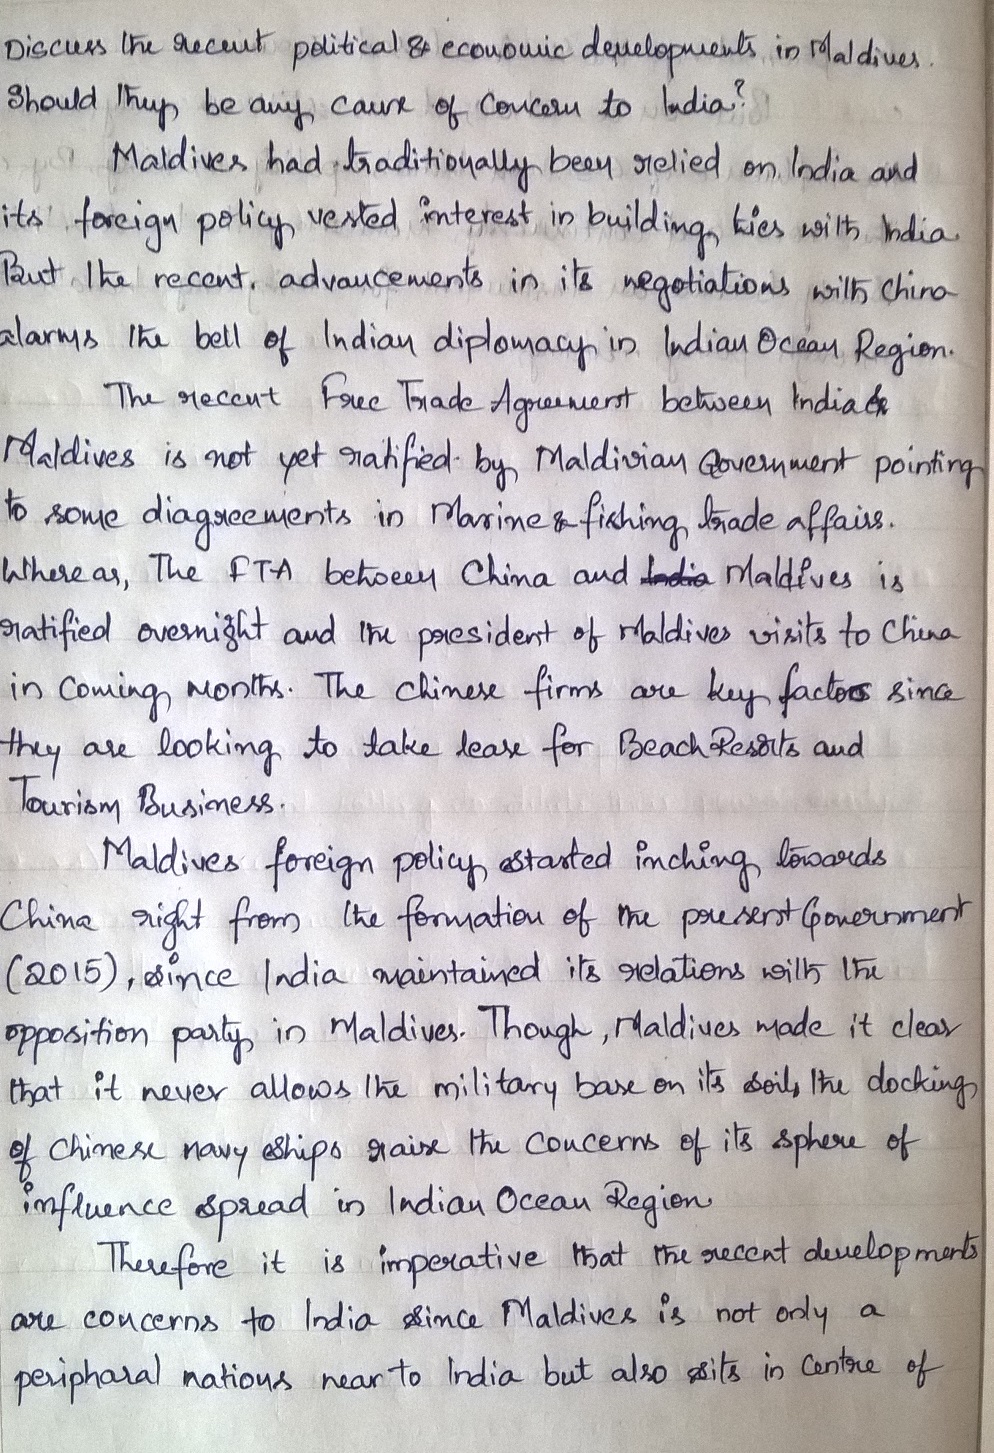 Discuss the recent political & economic developments in Maldives.
Should they be any cause of concern to India?
Maldives had traditionally been relied on India and
its foreign policy vested interest in building ties with India.
But the recent advancements in its negotiations with China
alarms the bell of Indian diplomacy in Indian Ocean Region.
The recent Free Trade Agreement between India &
Maldives is not yet ratified by Maldivian Government pointing
to some diagreements in Marine & fishing trade affairs.
Whereas, The FTA between China and India Maldives is
ratified overnight and the president of Maldives visits to China
in coming months. The Chinese firms are key factors since
they are looking to take lease for Beach Resorts and
Tourism Business.
Maldives foreign policy started inching towards
China right from the formation of the present Government
(2015), since India maintained its relations with the
opposition party in Maldives. Though, Maldives made it clear
that it never allows the military base on its soil, the docking
of Chinese navy ships raise the concerns of its sphere of
influence spread in Indian Ocean Region
Therefore it is imperative that the recent developments
are concerns to India since Maldives is not only a
peripharal nations near to India but also sits in centre of